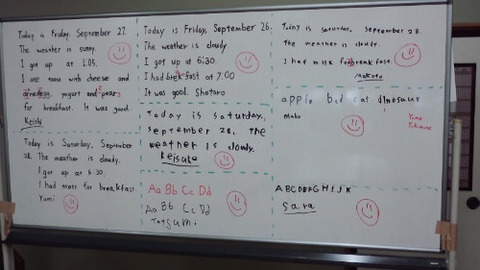 Today is Friday. September 27.
The weather is sunny.
I got up at 1.05.
I ate toast with cheese and
yogurt and pears
for breakfast. It was good.
Keishi
Today is Saturday, September
28. The weather is cloudy.
I got up at 6:30.
I had toast for breakfast
Yumi
Today is Friday, September 26.
The weather is cloudy
I got up at 6:30.
I had breakfast at 7:00
It was good. Shotaro
Today is saturday,
september 28. the
weather is cloudy.
Keisuke
Aa Bb Cc Dd
Aa Bb Cc Dd
Tatsumi.
Today is saturday. september 28.
The weather is cloudy.
I had milk for breakfast.
Makoto
apple bed cat dinosaur
Mako
Yuna
ABCDEFGHIJK
Sara